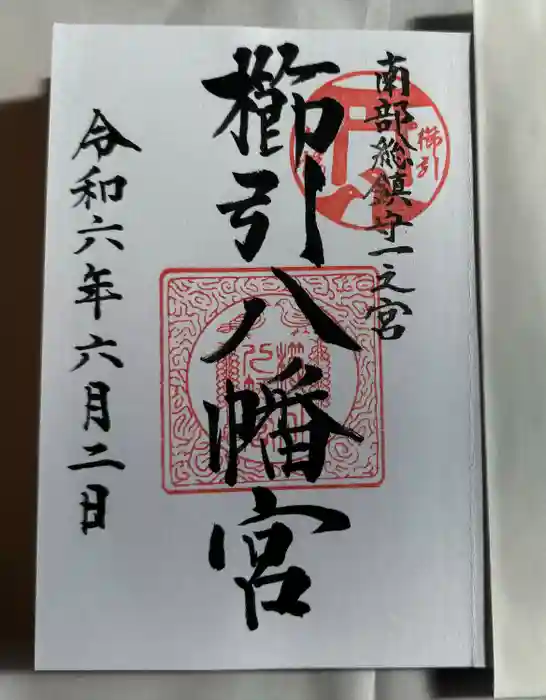 南部総鎮守一之宮
櫛引八幡宮
令和六年六月二日
櫛引